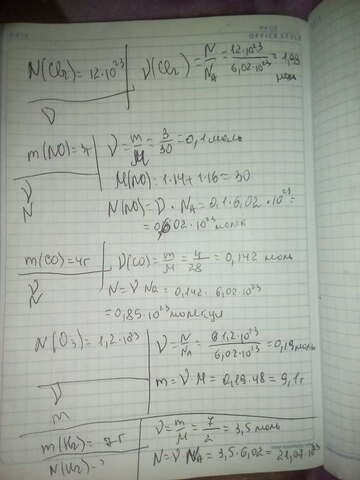 N(Cl₂)=12·10²³ ν(Cl₂)=N/Nₐ=12·10²³/6,02·10²³=1,99 моль
ν
m(NO)=3г ν=m/M=3/30=0,1 моль
M(NO)=1·14+1·16=30
ν
N N(NO)=ν·Nₐ=0,1·6,02·10²³=
=0,602·10²³ молек
m(CO)=4г ν(CO)=m/M=4/28=0,142 моль
ν
N N=ν Nₐ=0,142·6,02·10²³
=0,85·10²³ молекул
N(O₃)=1,2·10²³ ν=N/Nₐ=1,2·10²³/6,02·10²³=0,19 моль
ν
m m=ν·M=0,19·48=9,1г
m(H₂)=7г ν=m/M=7/2=3,5 моль
N(H₂)-? N=ν Nₐ=3,5·6,02=21,07·10²³